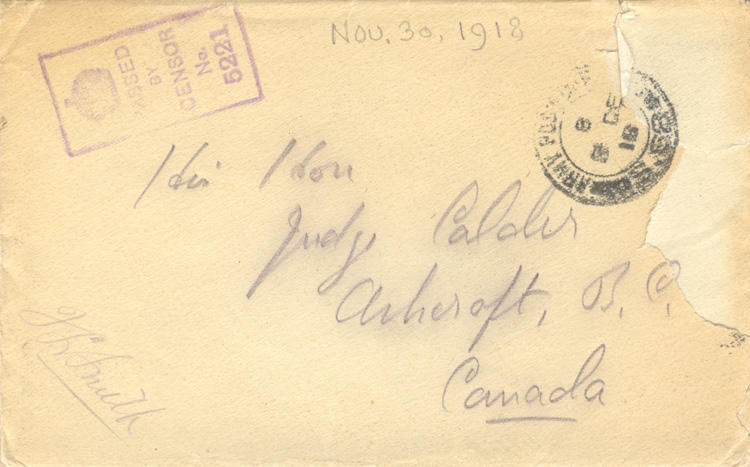 Nov. 30, 1918
PASSED
BY
CENSOR
No.
5221
ARMY POST
His Hon
Judge Calder
Ashcroft, B.C.
Canada
Smith